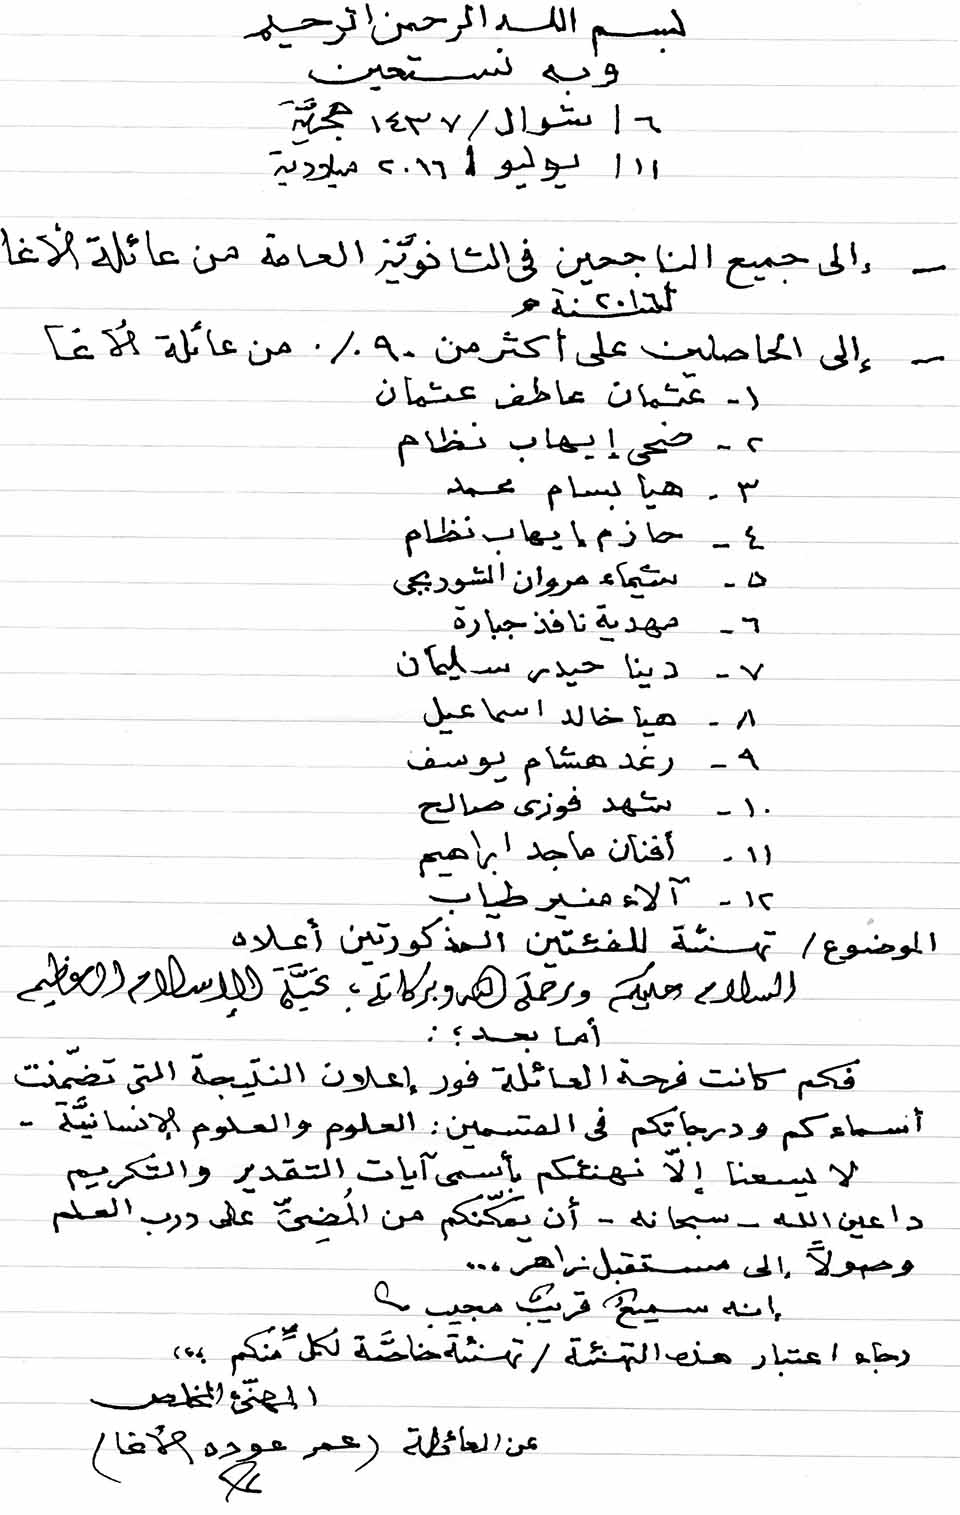 بسم الله الرحمن الرحيم
وبه نستعين
٦ / شوال / ١٤٣٧ هجريَّة
١١ / يوليو / ٢٠١٦ ميلادية
- إلى جميع الناجحين في الثانويَّة العامة من عائلة الأغا
للسنة ٢٠١٦م
- إلى الحاصلين على أكثر من ٩٠٪ من عائلة الأغا
١- عثمان عاطف عثمان
٢- ضحى إيهاب نظام
٣- هيا بسام محمد
٤- حازم إيهاب نظام
٥- شيماء مروان الشوربجي
٦- مهدية نافذ جبارة
٧- دينا حيدر سليمان
٨- هيا خالد اسماعيل
٩- رغد هشام يوسف
١٠- شهد فوزي صالح
١١- أفنان ماجد ابراهيم
١٢- آلاء منير طياب
الموضوع / تهنئة للفئتين المذكورتين أعلاه
السلام عليكم ورحمة الله وبركاته، تحيَّة الإسلام العظيم
أما بعد؛:
فكم كانت فرحة العائلة فور إعلان النتيجة التي تضمّنت
أسماءكم ودرجاتكم في القسمين: العلوم والعلوم الإنسانيَّة -
لا يسعنا إلّا نهنئكم بأسمى آيات التقدير والتكريم
داعين الله - سبحانه - أن يمكّنكم من المُضيّ على درب العلم
وصولاً إلى مستقبل زاهر ...
إنه سميعٌ قريبٌ مجيب
رجاء اعتبار هذه التهنئة / تهنئة خاصَّة لكلٍّ منكم ،،،
المهنّئ المخلص
عن العائلة (عمر عوده الأغا)